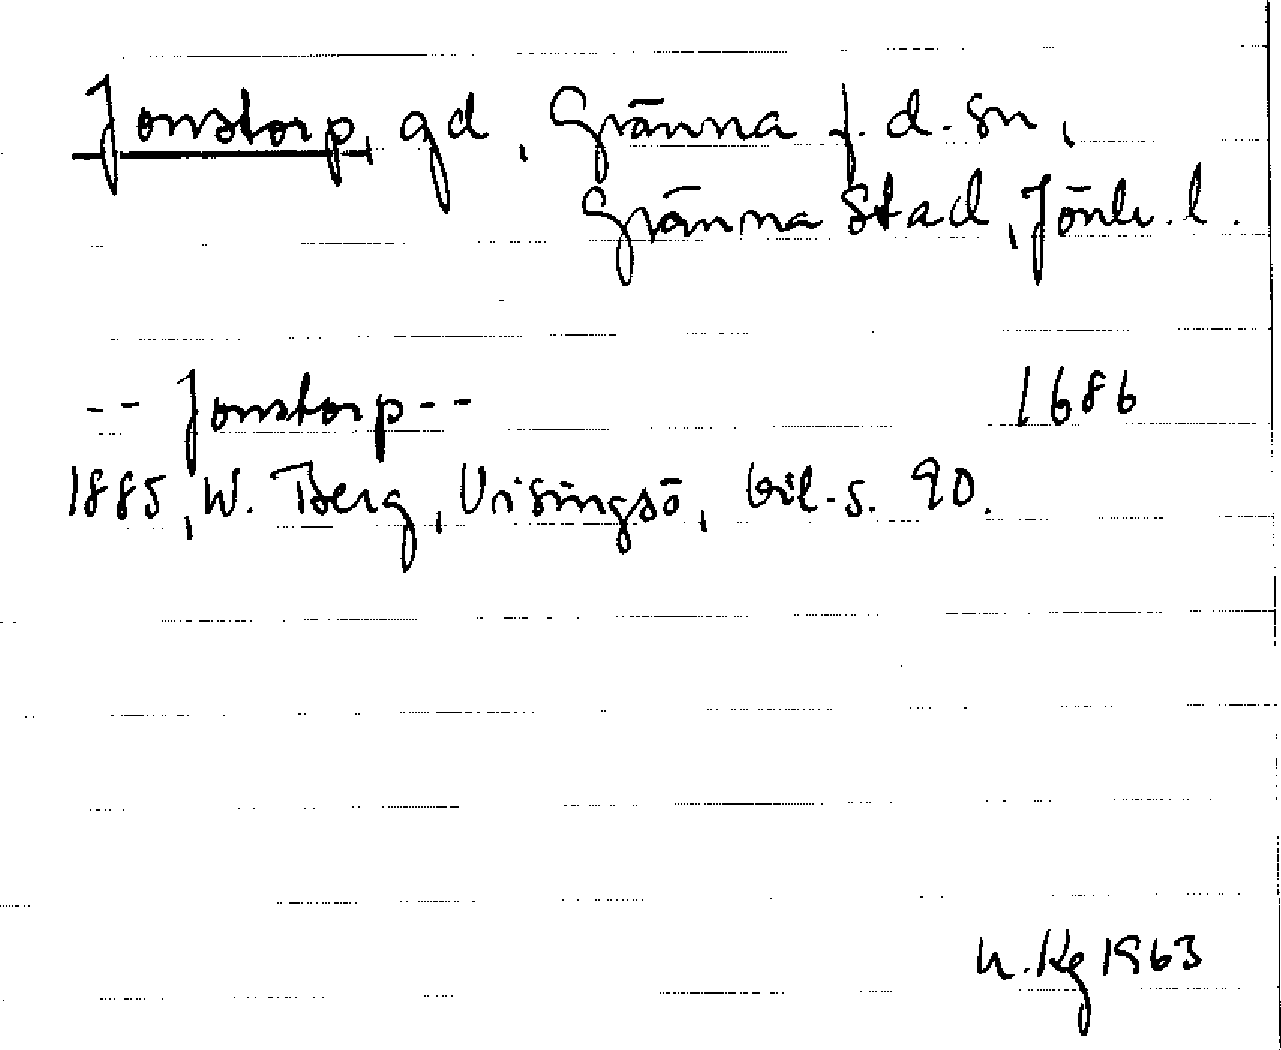 Jonstorp, gd, Gränna f.d. sn,
Gränna stad, Jönk. l.
-- Jonstorp -- 1686
1885, W. Berg, Visingsö, bil. s. 90.
h. Kg 1963